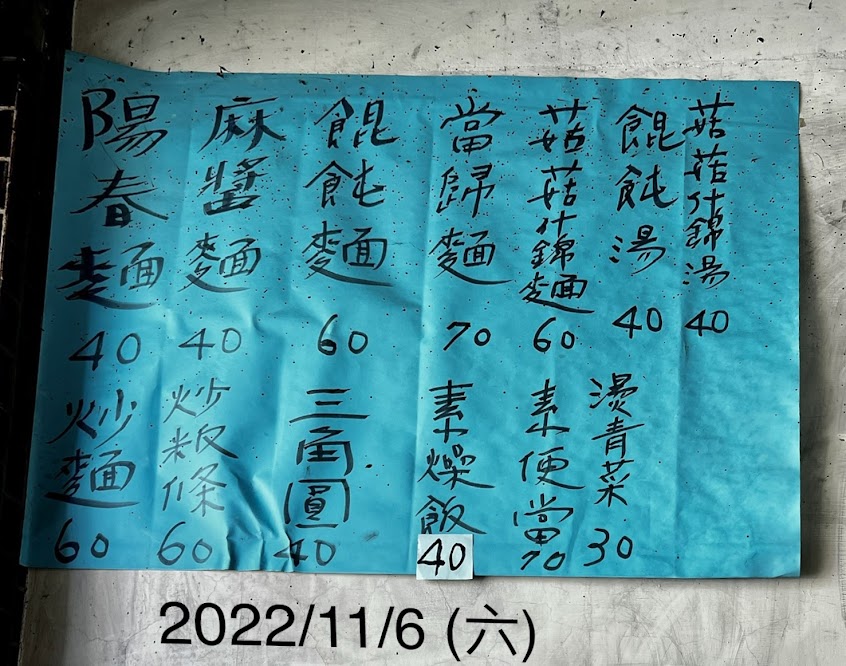 陽春麵 40
麻醬麵 40
餛飩麵 60
當歸麵 70
菇菇什錦麵 60
餛飩湯 40
菇菇什錦湯 40
炒麵 60
炒粄條 60
三角圓 40
素燥飯 40
素便當 70
燙青菜 30
2022/11/6 (六)